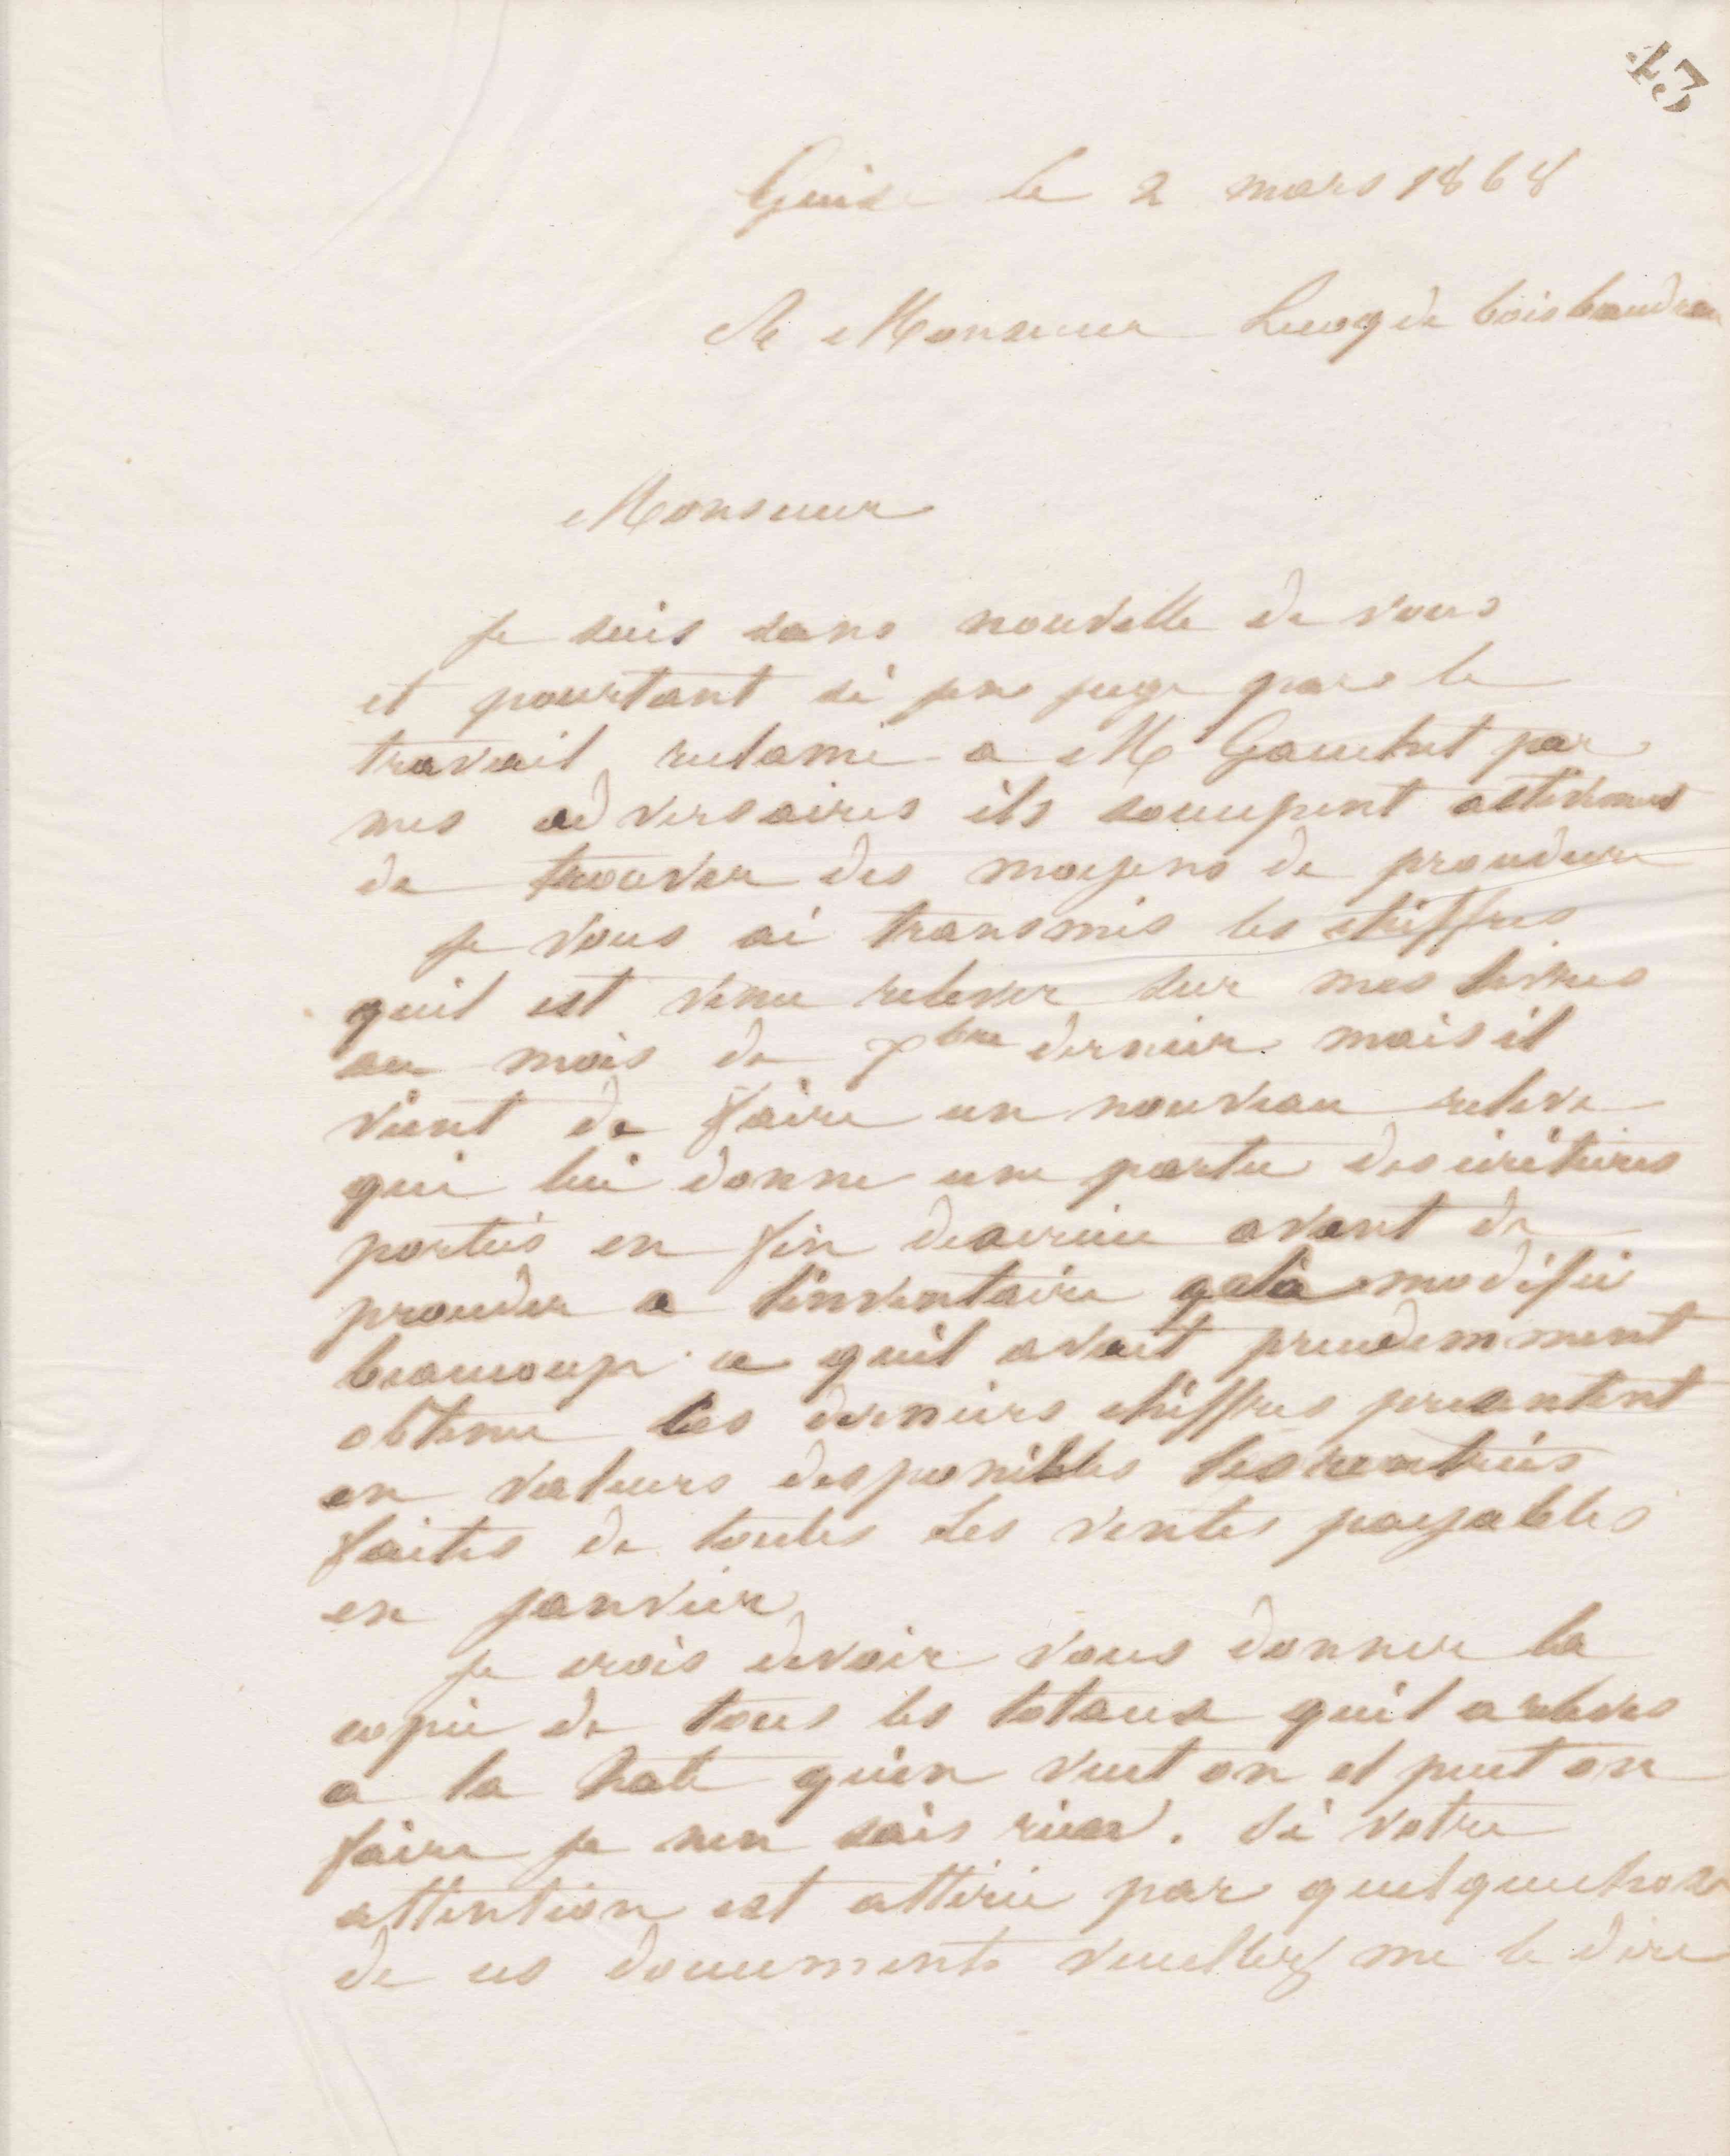 43
Guise le 2 mars 1868
A Monsieur Lecoq de boisbaudran
Monsieur
je suis sans nouvelle de vous
et pourtant si jen juge par le
travail reclamé a M Gauchet par
mes adversaires ils soccupent activement
de trouver des moyens de procedure
je vous ai transmis les chiffres
quil est venu relever sur mes livres
au mois de 7bre dernier mais il
vient de faire un nouveau relevé
qui lui donne une partie des ecritures
portées en fin avant de
proceder a l'inventaire modifié
beaucoup ce quil avait precedemment
obtenu les derniers chiffres presentent
en valeurs disponibles les rentrées
faites de toutes les ventes payables
en janvier
je crois devoir vous donner la
copie de tous les totaux quil a relevés
a la hate qu'en veut on et peut on
faire je nen sais rien. Si votre
attention est attirée par quelque chose
de ces documents veuillez me le dire